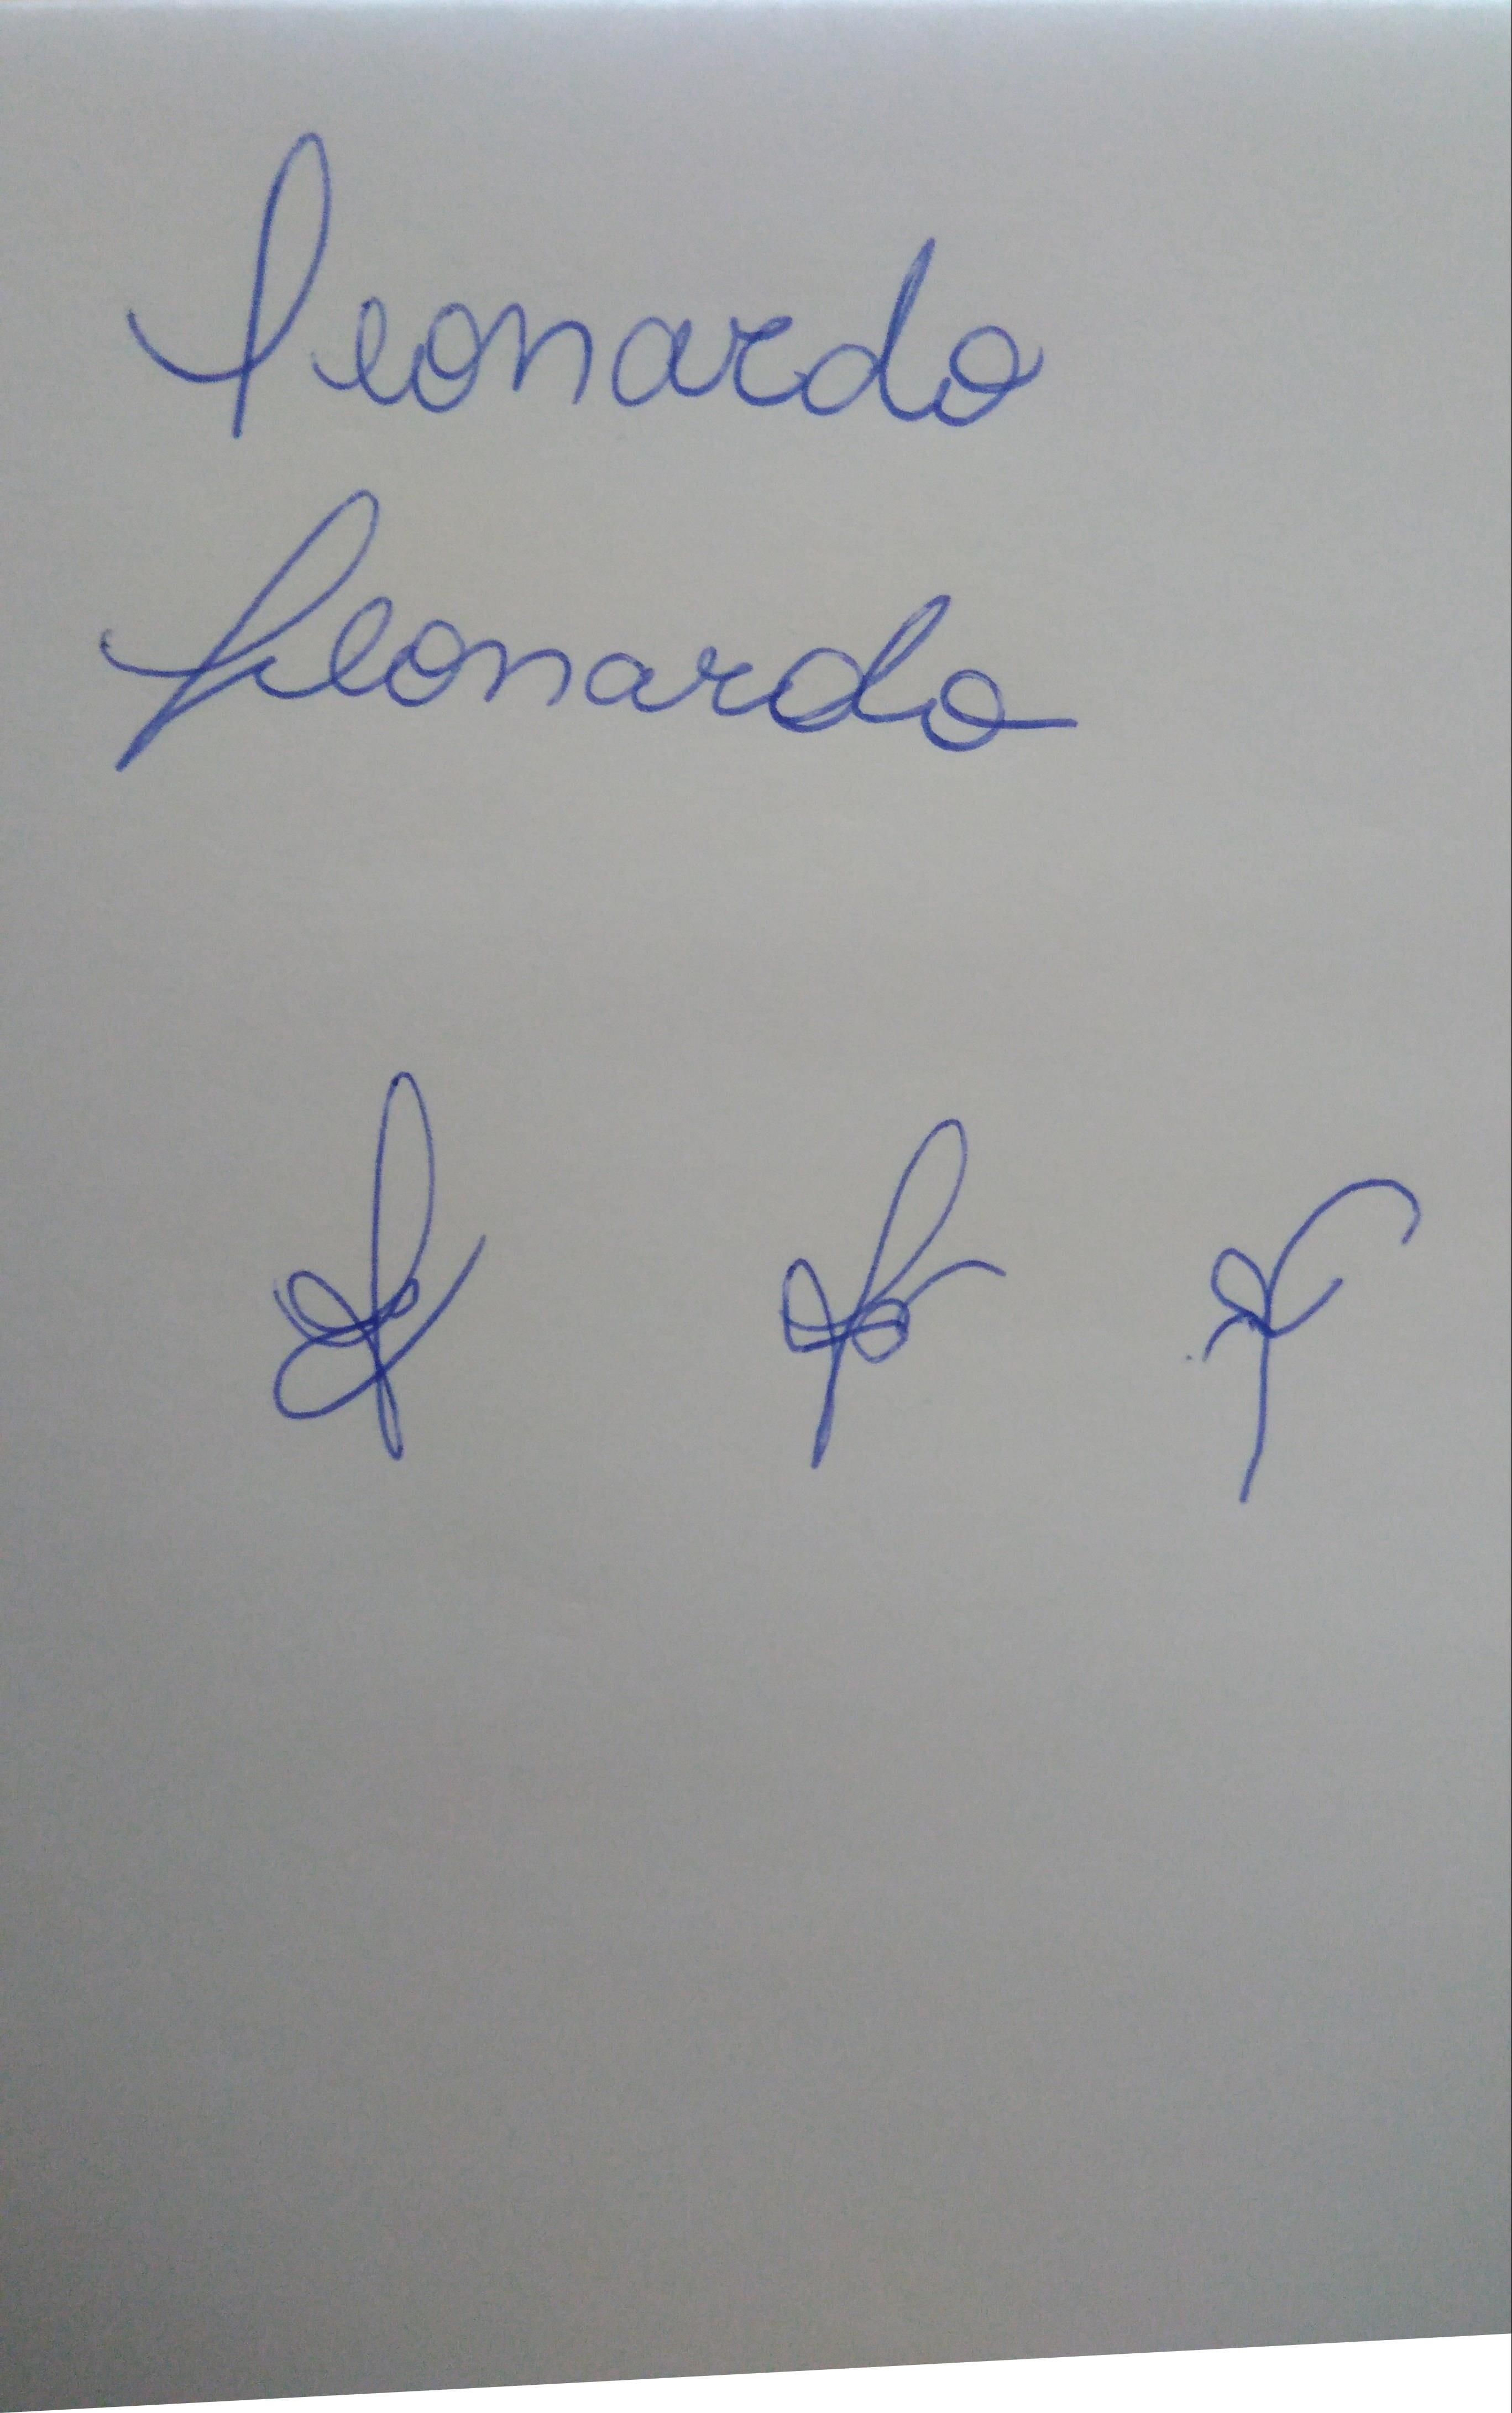 Leonardo
Leonardo